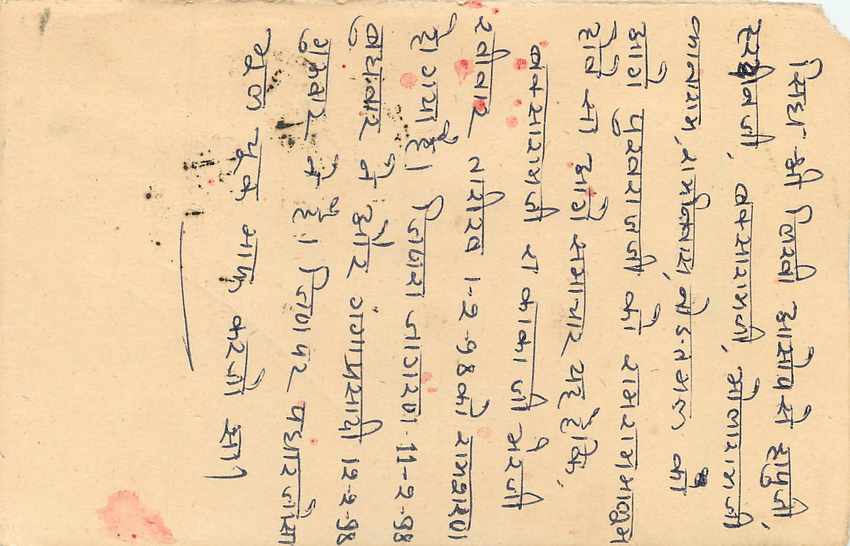 सिद्ध श्री लिखी आसोप से हापुजी,
हरदीनजी, बक्सारामजी, भोलारामजी
कानाराम, रामनिवास, की
आगे पुखराजजी को रामराम मालुम
होवे सा आगे समाचार यह है कि,
बक्सारामजी रा काकाजी भेरजी
रवीवार तारीख 1-2-98 को रामशरण
होगया है। जिणरा जागरण 11-2-98
बुधवार ने और गंगाप्रसादी 12-2-98
गुरुवार ने है। जिण पर पधारजोसा
भुल चुक माफ करजो सा